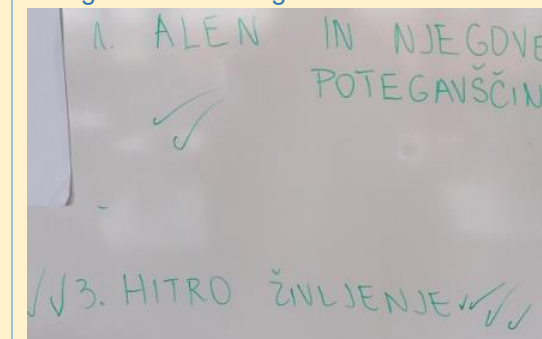 1. ALEN IN NJEGOVE
POTEGAVŠČIN
3. HITRO ŽIVLJENJE